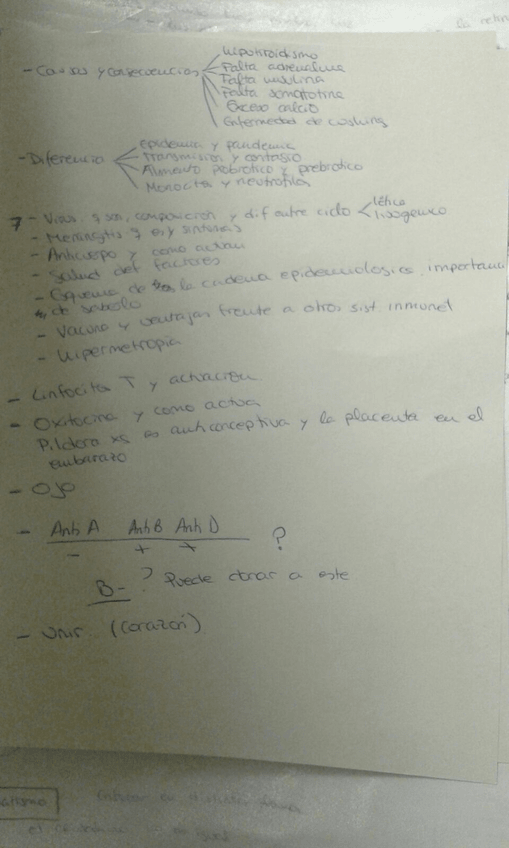 Hipotiroidismo
- Causas y consecuencias
Falta adrenalina
Falta insulina
Falta somatotina
Exceso calcio
Enfermedad de cushing
- Diferencia
epidemia y pandemia
Transmision y contagio
Alimento probiotico y prebiotico
Monocito y neutrofilo
7 - Virus q son, composicion y dif entre ciclo
lítico
lisogenico
- Meningitis q es y sintomas
- Anticuerpo y como actuan
- Salud def factores
- Esquema de la cadena epidemiologica, importanci
de saberlo
- Vacuna y ventajas frente a otros sist. inmunel
- Hipermetropia
- Linfocitos T y activacion
- Oxitocina y como actua
Pildora xq es anticonceptiva y la placenta en el
embarazo
- Ojo
- Anti A Anti B Anti D
- + + ?
B- ? Puede donar a este
- Unir (corazon)